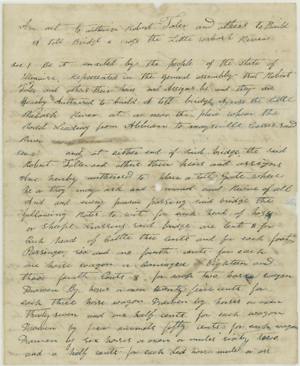 An act to authorise Robert Toler and others to Build
a toll Bridge a cross the Little wabash River
sec 1 Be it enacted by the people of the State of
Illinois, Represented in the general assembly that Robert
Toler and others their heirs and assigns be and they are
Hereby authorised to build A toll bridge across the Little
Wabash River at or near the place where the
Road Leading from Albion to maysville Crosses said
River
sec and at either end of such bridge the said
Robert Toler and others their heirs and assigns
are hereby authorised to place a toll gate where
he or they may ask and demand and Receive of all
And every person passing said bridge the
following Rates to wit for each head of hogs
or sheep crossing said bridge one cent for
each head of cattle three cents and for each foot
Passenger six and one fourth cents for each
one horse wagon or carriage Eighteen and
three fourth cents for each two horse wagon
Drawn By horse or oxen twenty five cents for
each three horse wagon Drawn by horses or oxen
thirty seven and one half cents for each wagon
Drawn by four animals fifty cents for each wagon
Drawn by six horses or oxen or mules sixty two
and a half cents for each led horse mule or ass